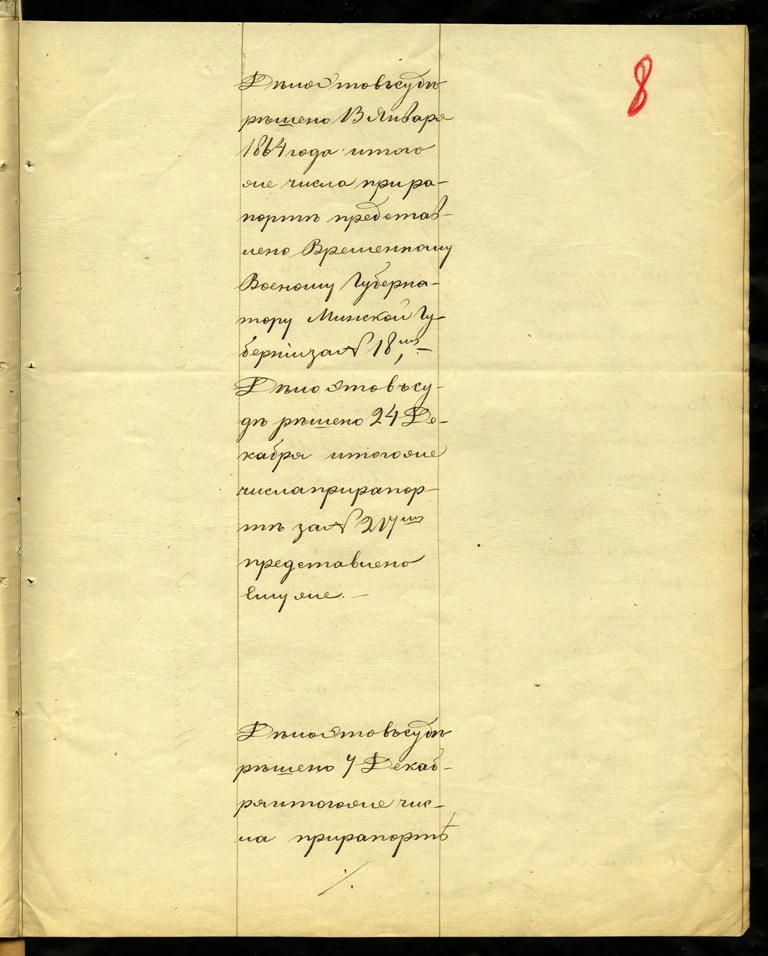 8
Дѣло это въ судѣ
рѣшено 13 Января
1864 года и того
же числа при ра-
портѣ представ-
лено Временному
Военому Губерна-
тору Минской Гу-
берніи за № 18,ᵐъ –
Дѣло это въ су-
дѣ рѣшено 24 Де-
кабря и того же
числа при рапор-
тѣ за № 217ᵐъ
представлено
Ему же. –
Дѣло это въ судѣ
рѣшено 7 Декаб-
ря и того же чис-
ла при рапортѣ
./.